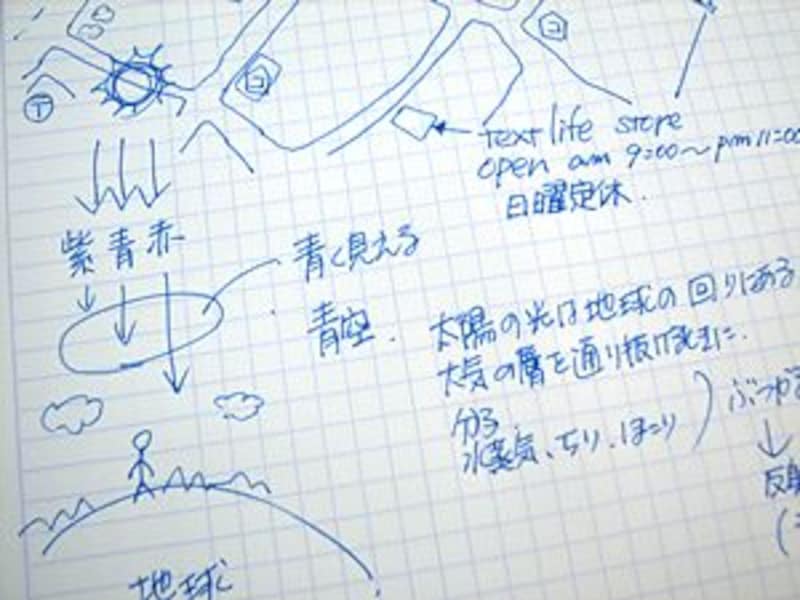 コ
コ
T
Text life store
open am 9:00～pm 11:00
日曜定休.
紫青赤
青く見える
青空.
太陽の光は地球の回りにある
大気の層を通り抜けるときに.
分子
水蒸気、ちり、ほこり
ぶつかる
反射
地球